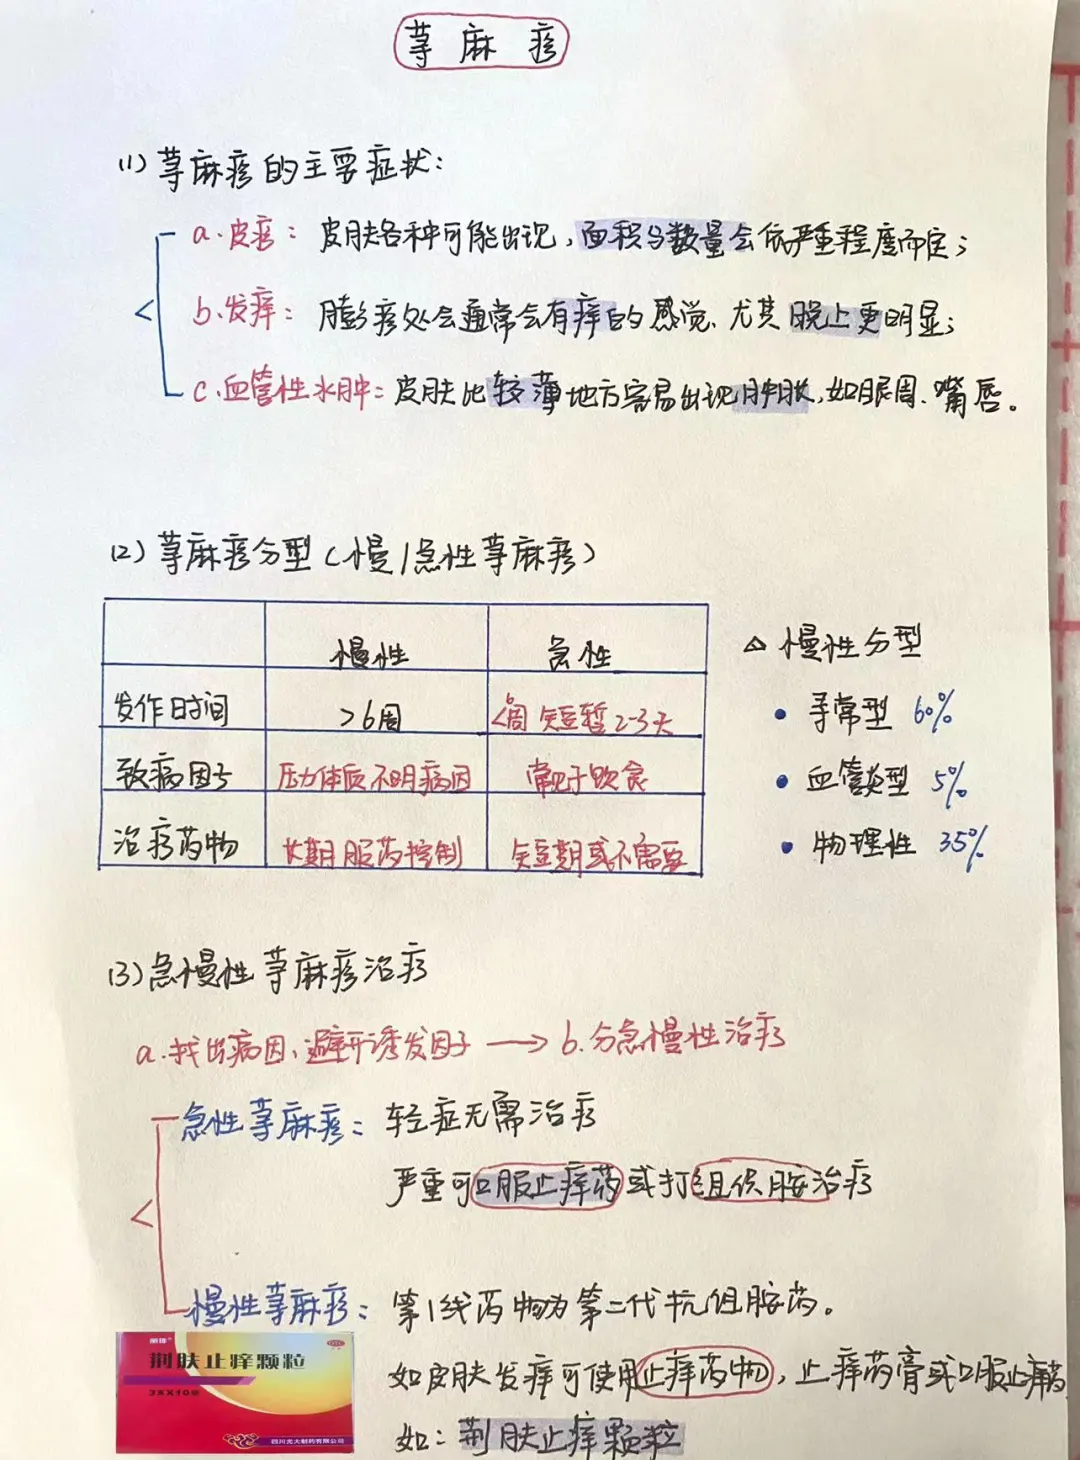 荨麻疹
(1) 荨麻疹的主要症状:
a.皮疹: 皮肤各种可能出现,面积与数量会依严重程度而定;
b.发痒: 膨疹处会通常会有痒的感觉、尤其晚上更明显;
c.血管性水肿: 皮肤比较薄地方容易出现肿胀,如眼周、嘴唇。
(2) 荨麻疹分型(慢/急性荨麻疹)
慢性 急性
发作时间 >6周 <6周 短暂2-3天
致病因子 压力体质不明病因 常见于饮食
治疗药物 长期服药控制 短期或不需要
△ 慢性分型
• 寻常型 60%
• 血管炎型 5%
• 物理性 35%
(3) 急慢性荨麻疹治疗
a.找出病因、避开诱发因子 → b.分急慢性治疗
急性荨麻疹: 轻症无需治疗
严重可口服止痒药或打组织胺治疗
慢性荨麻疹: 第1线药物为第二代抗组胺药。
如皮肤发痒可使用止痒药物,止痒药膏或口服止痒药
如: 荆肤止痒颗粒
荆肤止痒颗粒
四川光大制药有限公司